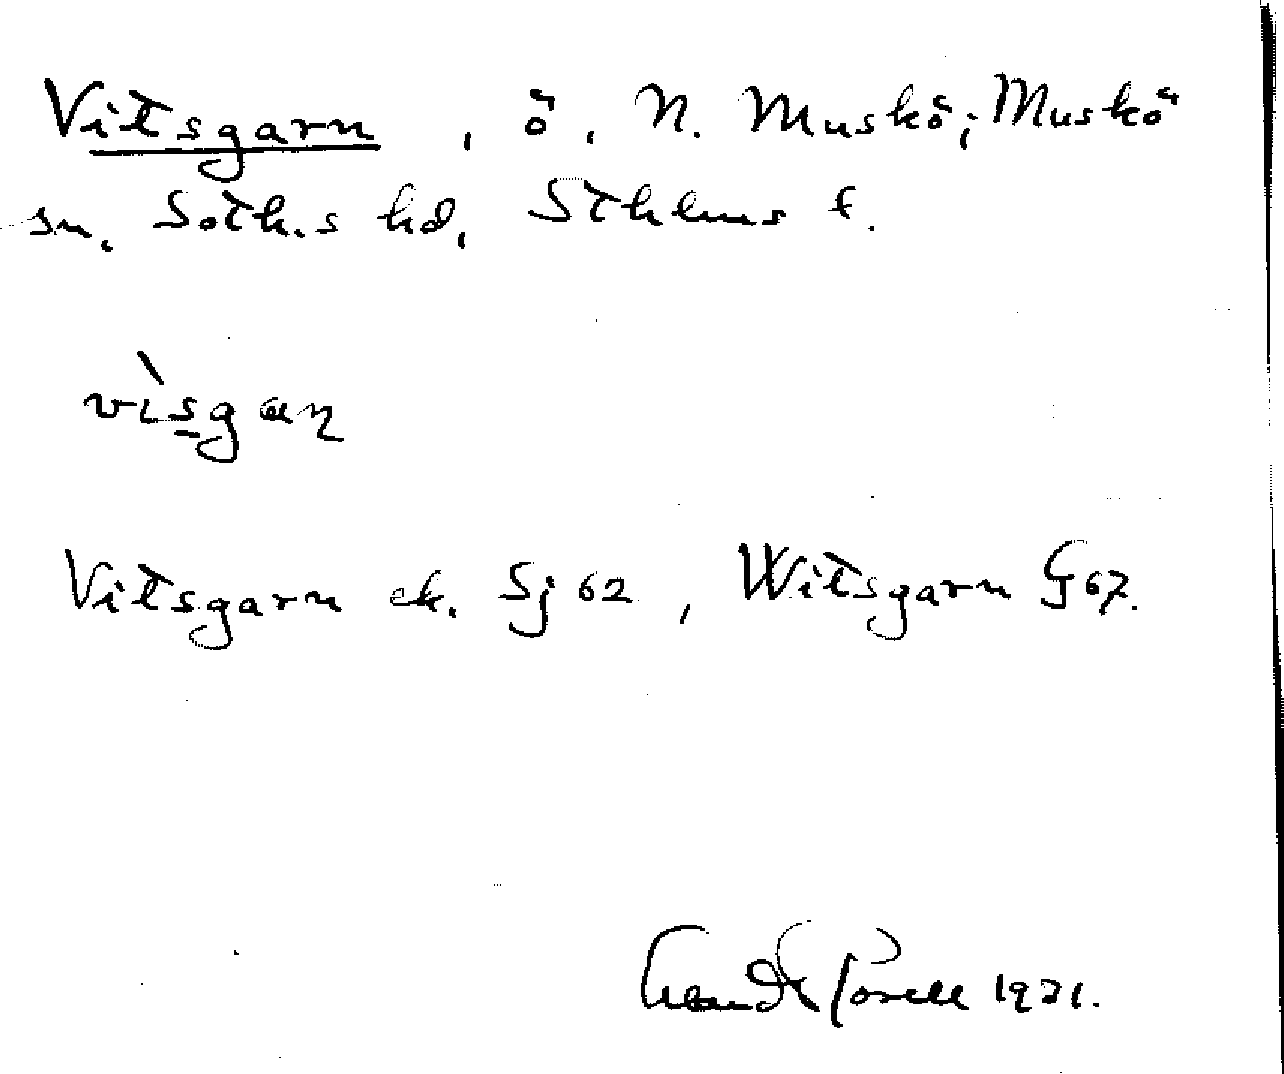 Vitsgarn, ö, N. Muskö; Muskö
sn, Soth.s hd, Sthlms l.
vìsgaɳ
Vitsgarn ek. Sj 62, Witsgarn G 67.
1921.